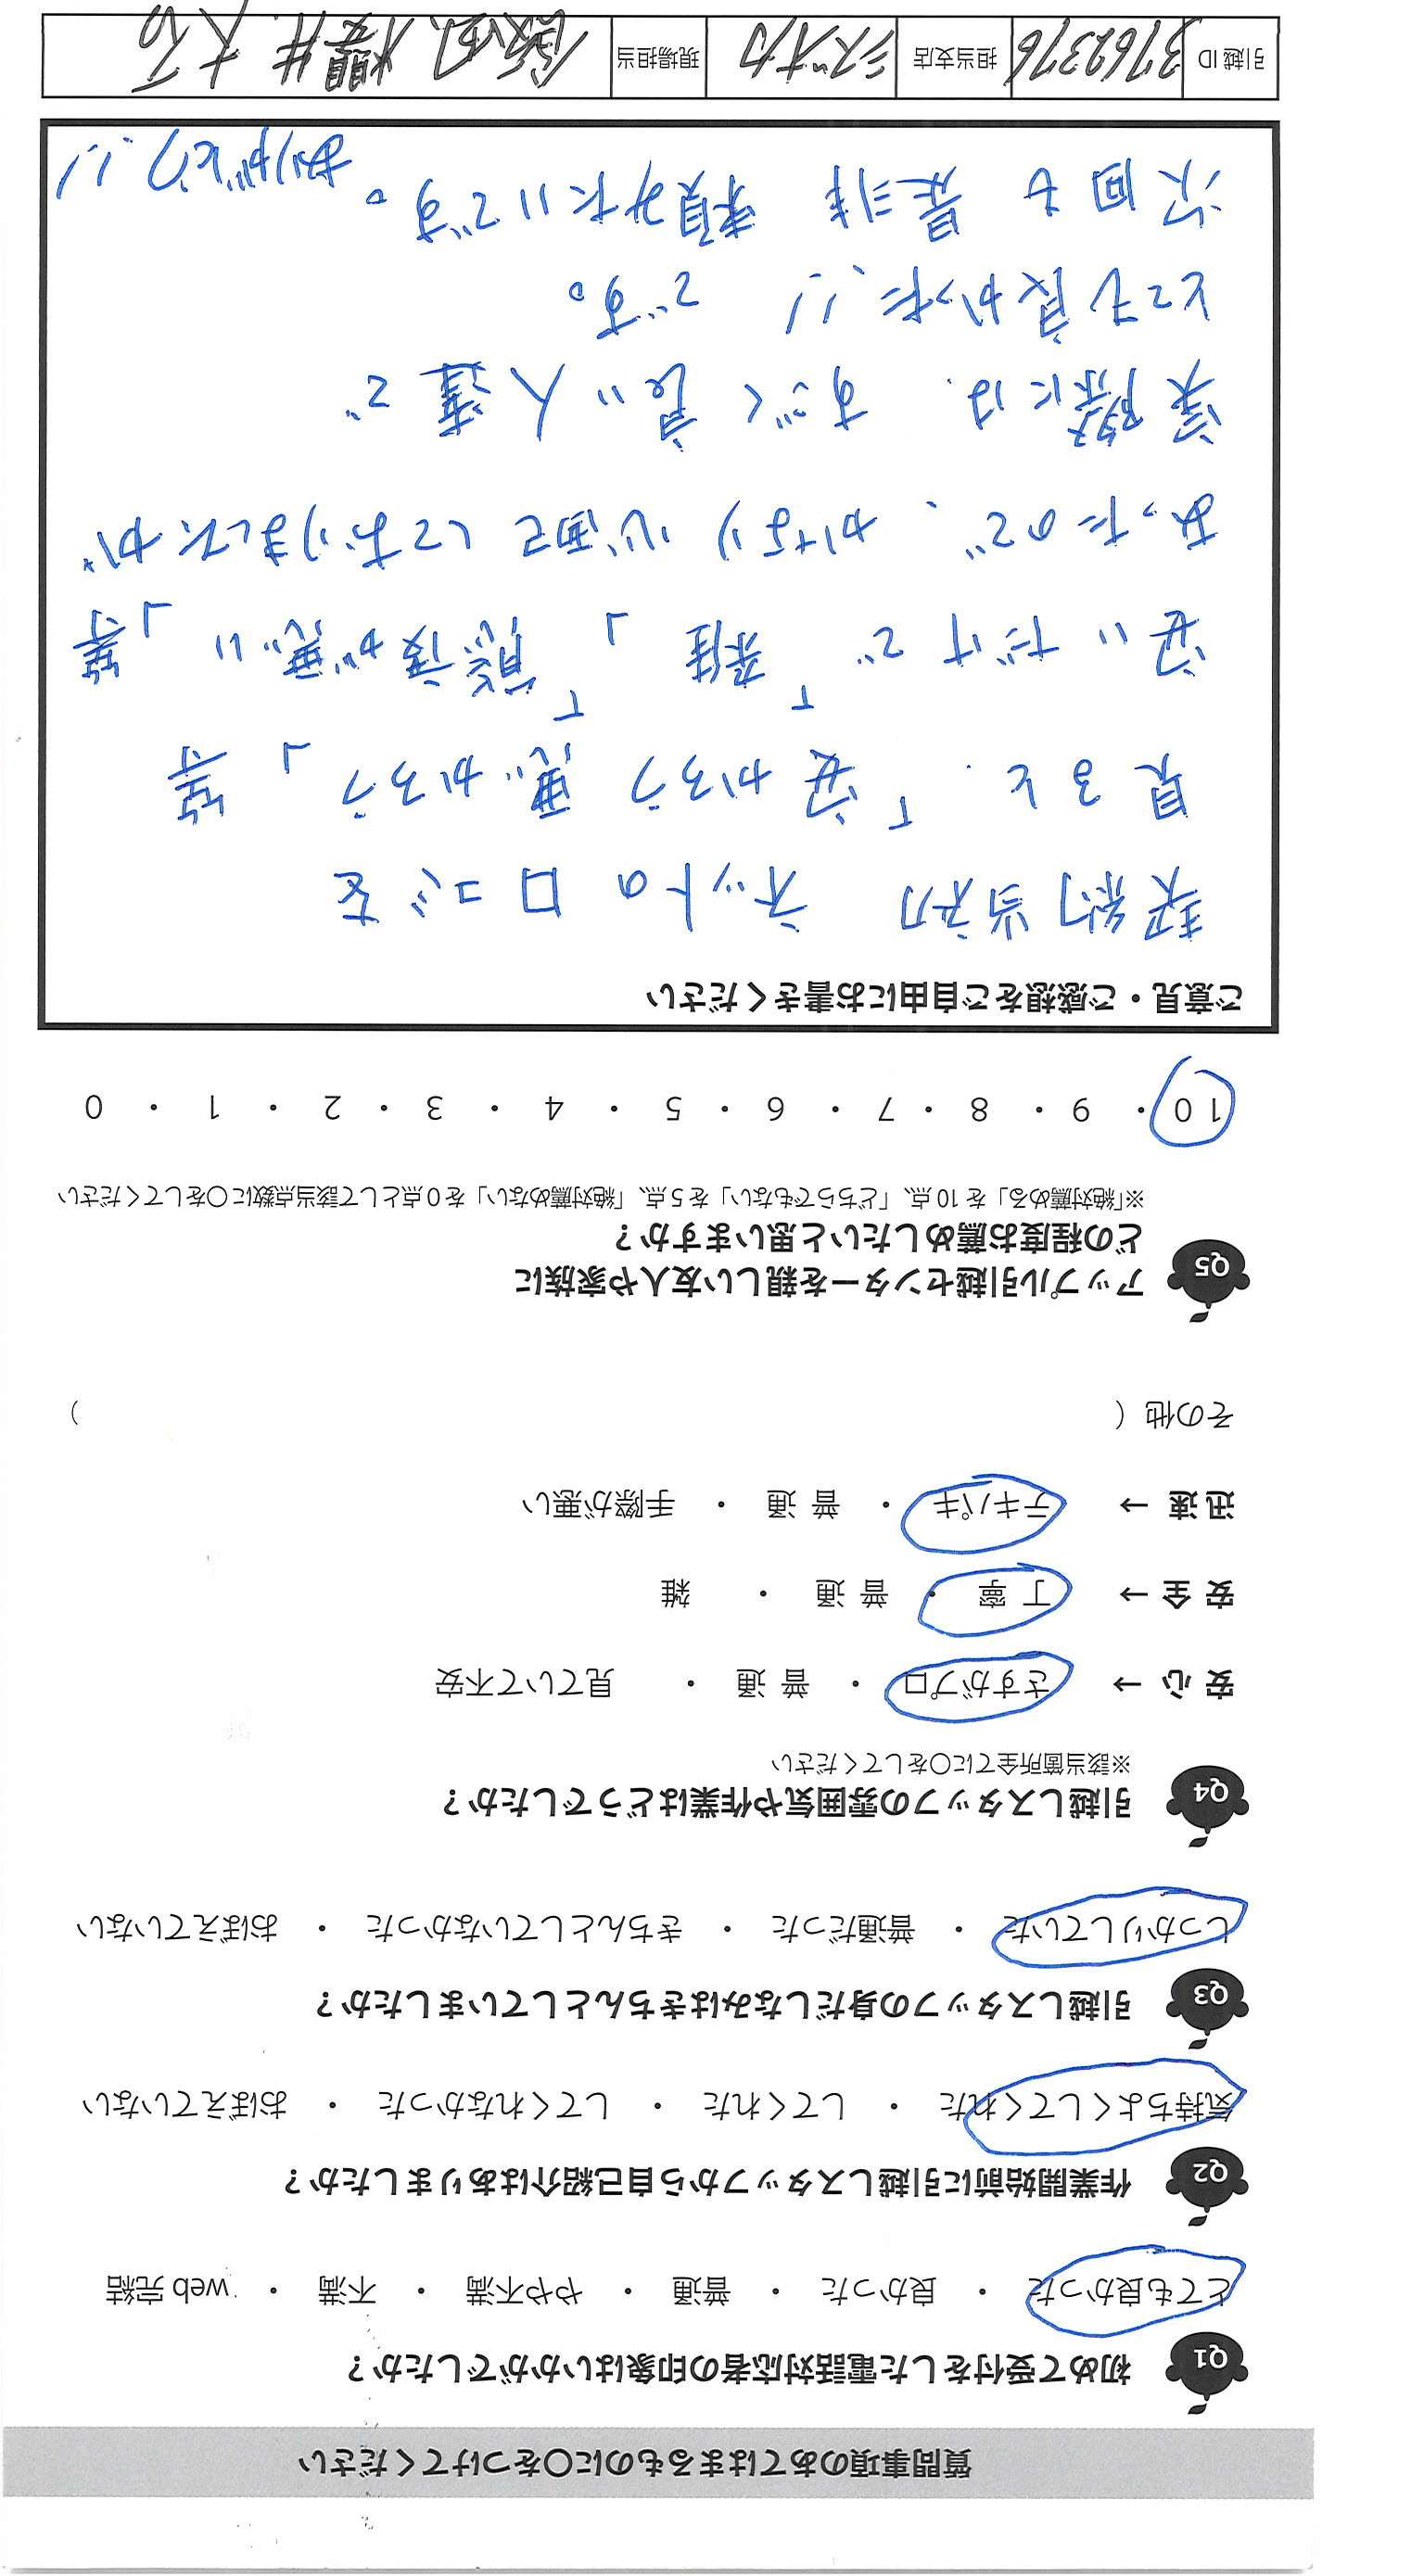 質問事項のあてはまるものに○をつけてください
Q1 初めて受付をした電話対応者の印象はいかがでしたか？
とても良かった ・ 良かった ・ 普通 ・ やや不満 ・ 不満 ・ web 完結
Q2 作業開始前に引越しスタッフから自己紹介はありましたか？
気持ちよくしてくれた ・ してくれた ・ してくれなかった ・ おぼえていない
Q3 引越しスタッフの身だしなみはきちんとしていましたか？
しっかりしていた ・ 普通だった ・ きちんとしていなかった ・ おぼえていない
Q4 引越しスタッフの雰囲気や作業はどうでしたか？
※該当箇所全てに○をしてください
安 心 → さすがプロ ・ 普 通 ・ 見ていて不安
安 全 → 丁 寧 ・ 普 通 ・ 雑
迅 速 → テキパキ ・ 普 通 ・ 手際が悪い
その他（ ）
Q5 アップル引越センターを親しい友人や家族に
どの程度お薦めしたいと思いますか？
※「絶対薦める」を 10 点、「どちらでもない」を 5 点、「絶対薦めない」を 0 点として該当点数に○をしてください
10 ・ 9 ・ 8 ・ 7 ・ 6 ・ 5 ・ 4 ・ 3 ・ 2 ・ 1 ・ 0
ご意見・ご感想をご自由にお書きください
契約当初 ネットの口コミを
見ると、「安かろう悪かろう」等
安いだけで「雑」「態度が悪い」等
あったので、かなり心配しておりましたが
実際には、すごく良い人達で
とても良かった!! です。
次回も是非頼みたいです。ありがとう!!
引越 ID 3762376 担当支店 シズオカ 現場担当 飯田 櫻井 大石